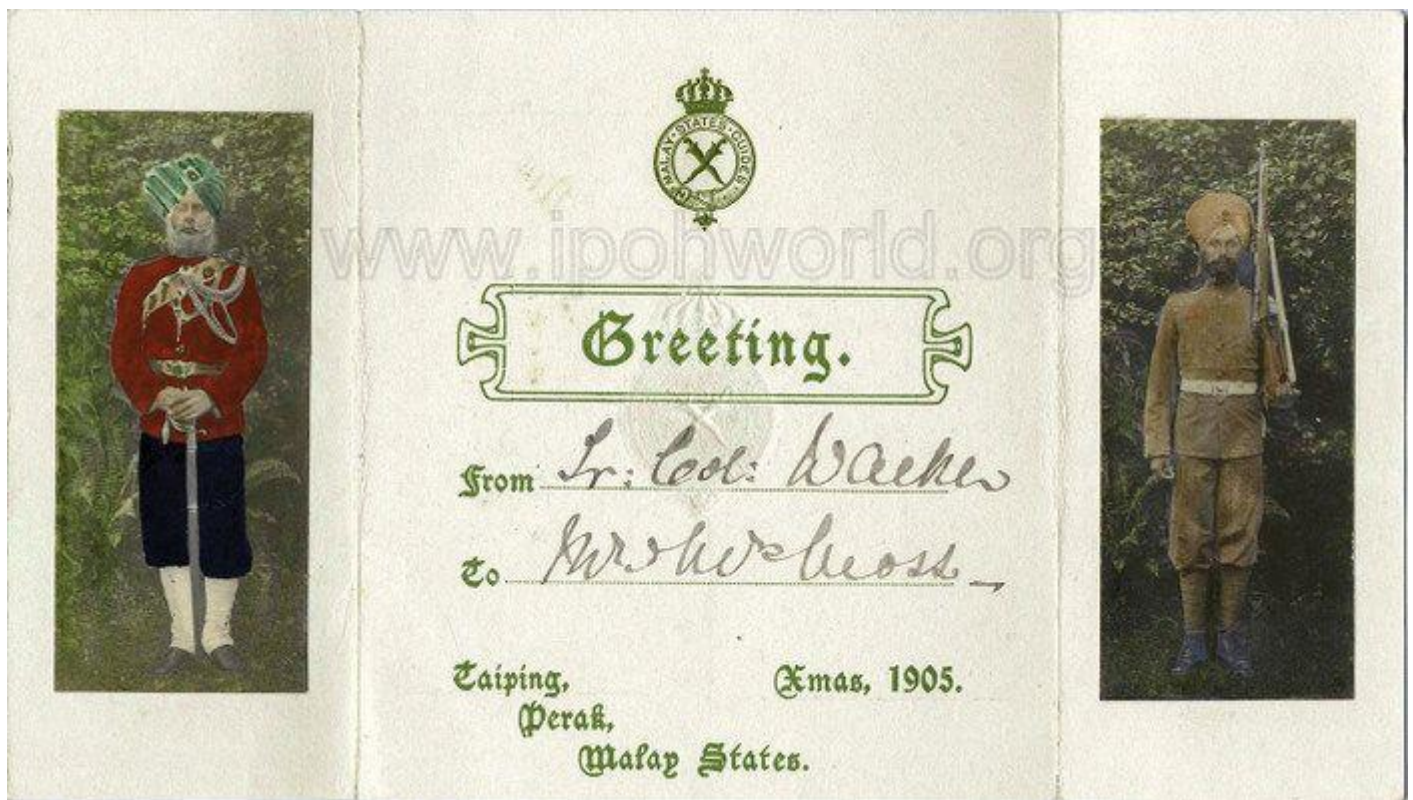 MALAY·STATES·GUIDES
www.ipohworld.org
Greeting.
From Lt: Col: Walker
To Mr & Mrs Cross
Taiping, Xmas, 1905.
Perak,
Malay States.